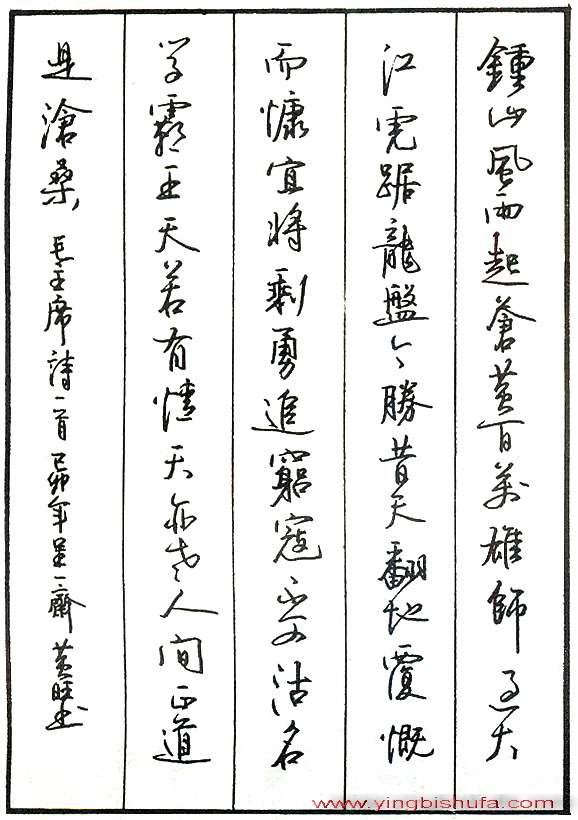 鍾山風雨起蒼黄百萬雄師過大
江虎踞龍盤今勝昔天翻地覆慨
而慷宜將剩勇追窮寇不可沽名
学霸王天若有情天亦老人間正道
是滄桑 毛主席詩一首己卯年齋黄旺书
www.yingbishufa.com